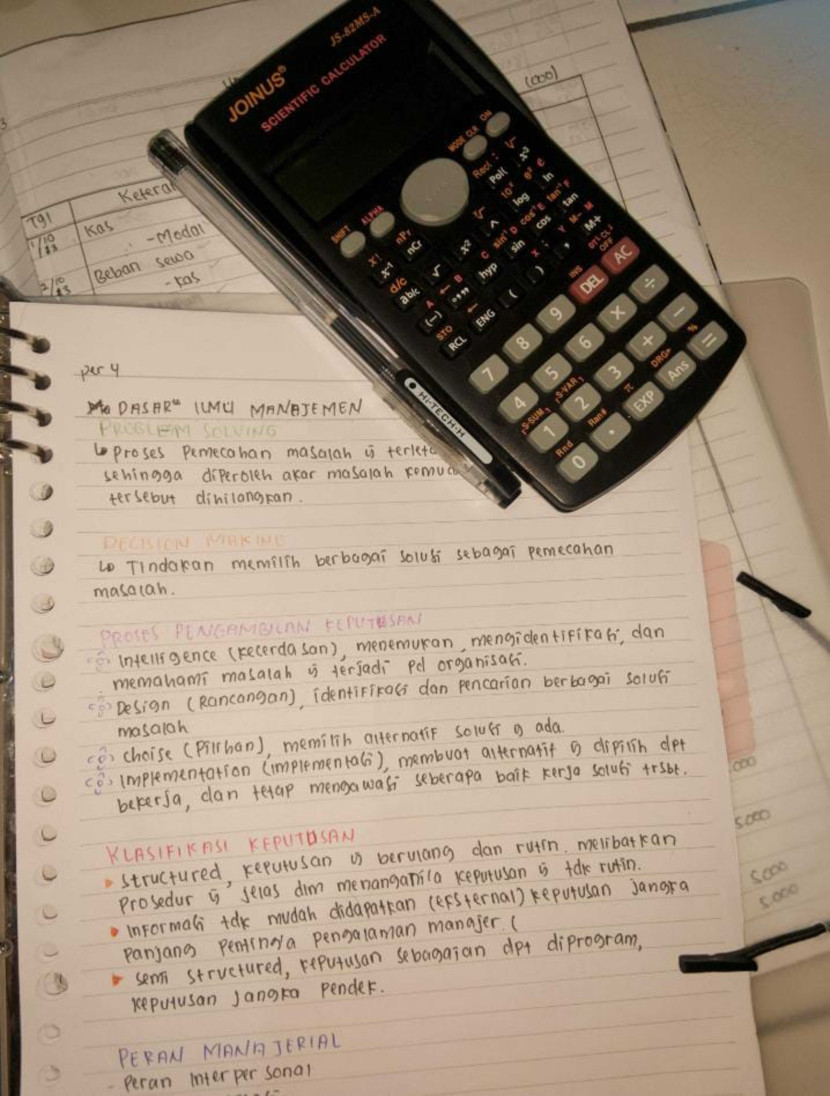 JOINUS®
JS-82MS-A
SCIENTIFIC CALCULATOR
(000)
Tgl
1/10
Kas
- Modal
2/10
Beban sewa
- kas
SHIFT ALPHA MODE CLR ON
DEL AC
7 8 9
4 5 6 × ÷
1 2 3 + −
0 . EXP Ans =
HI-TECH-H
per 4
DASAR" ILMU MANAJEMEN
PROBLEM SOLVING
↳ Proses Pemecahan masalah yg
sehingga diperoleh akar masalah
tersebut dihilangkan.
DECISION MAKING
↳ Tindakan memilih berbagai solusi sebagai pemecahan
masalah.
PROSES PENGAMBILAN KEPUTUSAN
Intelligence (kecerdasan), menemukan, mengidentifikasi, dan
memahami masalah yg terjadi pd organisasi.
Design (Rancangan), identifikasi dan pencarian berbagai solusi
masalah
choise (Pilihan), memilih alternatif solusi yg ada.
Implementation (implementasi), membuat alternatif yg dipilih dpt
bekerja, dan tetap mengawasi seberapa baik kerja solusi trsbt.
KLASIFIKASI KEPUTUSAN
structured, keputusan yg berulang dan rutin. melibatkan
Prosedur yg jelas dlm keputusan yg tdk rutin.
informasi tdk mudah didapatkan (eksternal) keputusan jangka
panjang pentingya pengalaman manajer. (
semi structured, keputusan sebagaian dpt diprogram,
keputusan jangka pendek.
PERAN MANAJERIAL
- Peran Interpersonal
.000
5.000
5.000
5.000